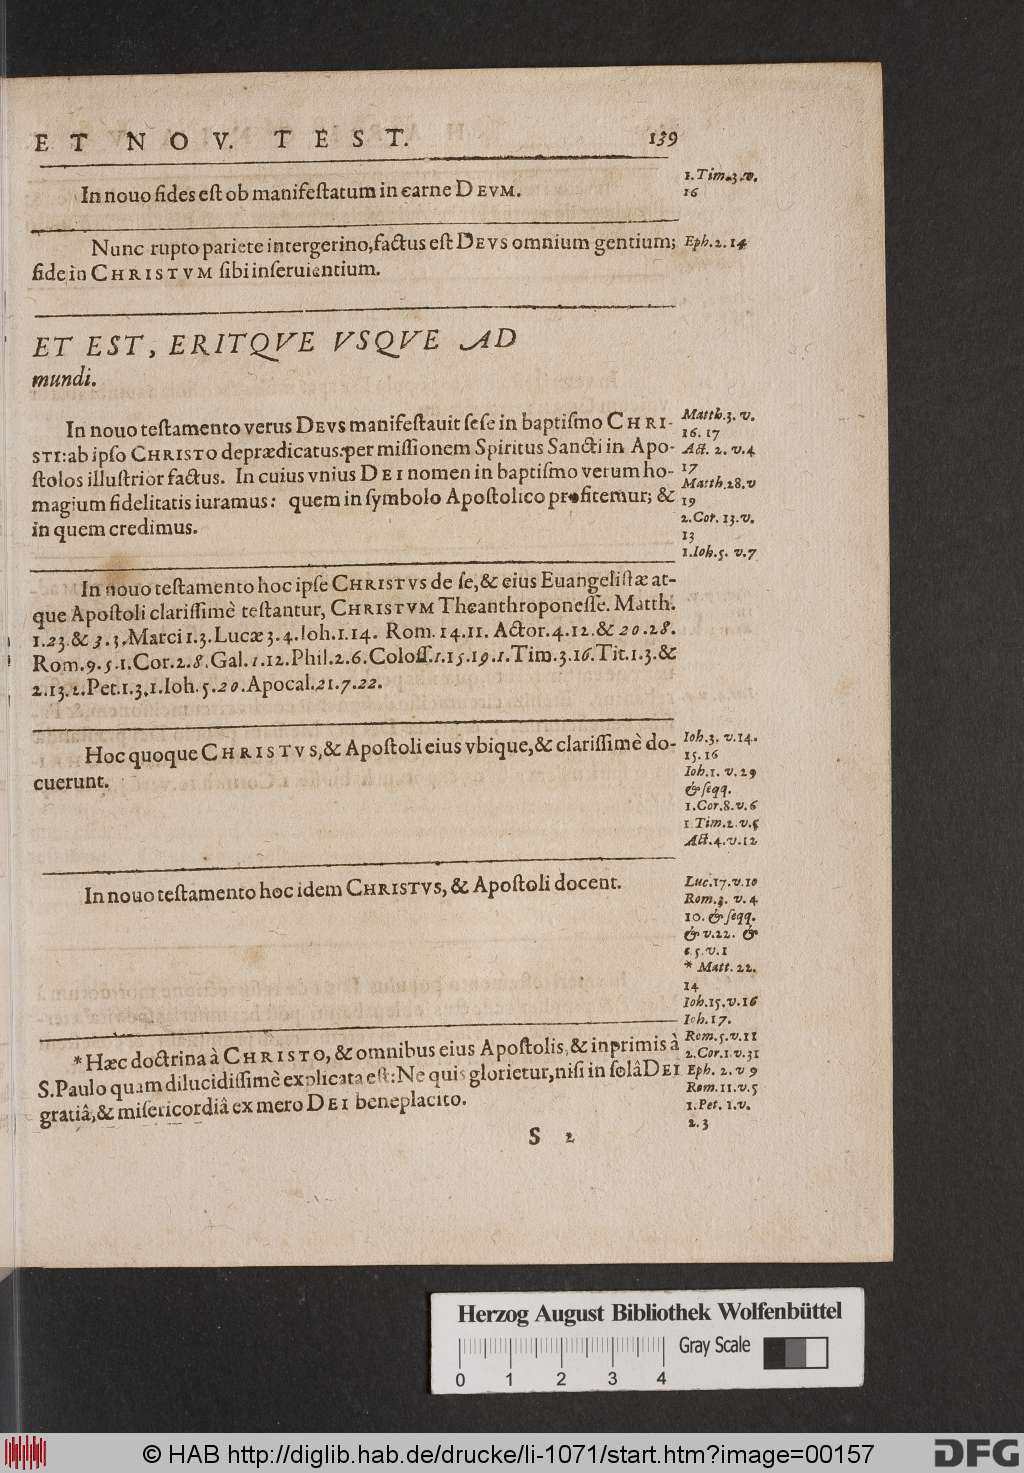 ET NOV. TEST. 139
In nouo fides est ob manifestatum in carne DEVM.
1. Tim. 3. v.
16
Nunc rupto pariete intergerino, factus est DEVS omnium gentium;
fide in CHRISTVM sibi inseruientium.
Eph. 2. 14
ET EST, ERITQVE VSQVE AD
mundi.
In nouo testamento verus DEVS manifestauit sese in baptismo CHRI-
STI: ab ipso CHRISTO deprædicatus: per missionem Spiritus Sancti in Apo-
stolos illustrior factus. In cuius vnius DEI nomen in baptismo verum ho-
magium fidelitatis iuramus: quem in symbolo Apostolico profitemur; &
in quem credimus.
Matth. 3. v.
16. 17
Act. 2. v. 4
17
Matth. 28. v
19
2. Cor. 13. v.
13
1. Ioh. 5. v. 7
In nouo testamento hoc ipse CHRISTVS de se, & eius Euangelistæ at-
que Apostoli clarissimè testantur, CHRISTVM Theanthropon esse. Matth.
1. 23. & 3. 3. Marci 1. 3. Lucæ 3. 4. Ioh. 1. 14. Rom. 14. 11. Actor. 4. 12. & 20. 28.
Rom. 9. 5. 1. Cor. 2. 8. Gal. 1. 12. Phil. 2. 6. Coloss. 1. 15. 19. 1. Tim. 3. 16. Tit. 1. 3. &
2. 13. 2. Pet. 1. 3. 1. Ioh. 5. 20. Apocal. 21. 7. 22.
Hoc quoque CHRISTVS, & Apostoli eius vbique, & clarissimè do-
cuerunt.
Ioh. 3. v. 14.
15. 16
Ioh. 1. v. 29
& seqq.
1. Cor. 8. v. 6
1 Tim. 2. v. 5
Act. 4. v. 12
In nouo testamento hoc idem CHRISTVS, & Apostoli docent.
Luc. 17. v. 10
Rom. 3. v. 4
10. & seqq.
& v. 22. &
c. 5. v. 1
* Matt. 22.
14
Ioh. 15. v. 16
Ioh. 17.
* Hæc doctrina à CHRISTO, & omnibus eius Apostolis, & inprimis à
S. Paulo quam dilucidissimè explicata est: Ne quis glorietur, nisi in solâ DEI
gratiâ, & misericordiâ ex mero DEI beneplacito.
Rom. 5. v. 11
2. Cor. 1. v. 31
Eph. 2. v 9
Rom. 11. v. 5
1. Pet. 1. v.
2. 3
S 2
Herzog August Bibliothek Wolfenbüttel
Gray Scale
0 1 2 3 4
© HAB http://diglib.hab.de/drucke/li-1071/start.htm?image=00157
DFG